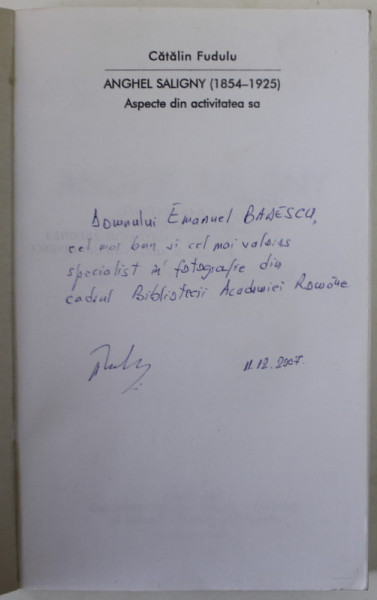 Cătălin Fudulu
ANGHEL SALIGNY (1854–1925)
Aspecte din activitatea sa
Domnului Emanuel BADESCU,
cel mai bun și cel mai valoros
specialist în fotografie din
cadrul Bibliotecii Academiei Române
11.12.2007.